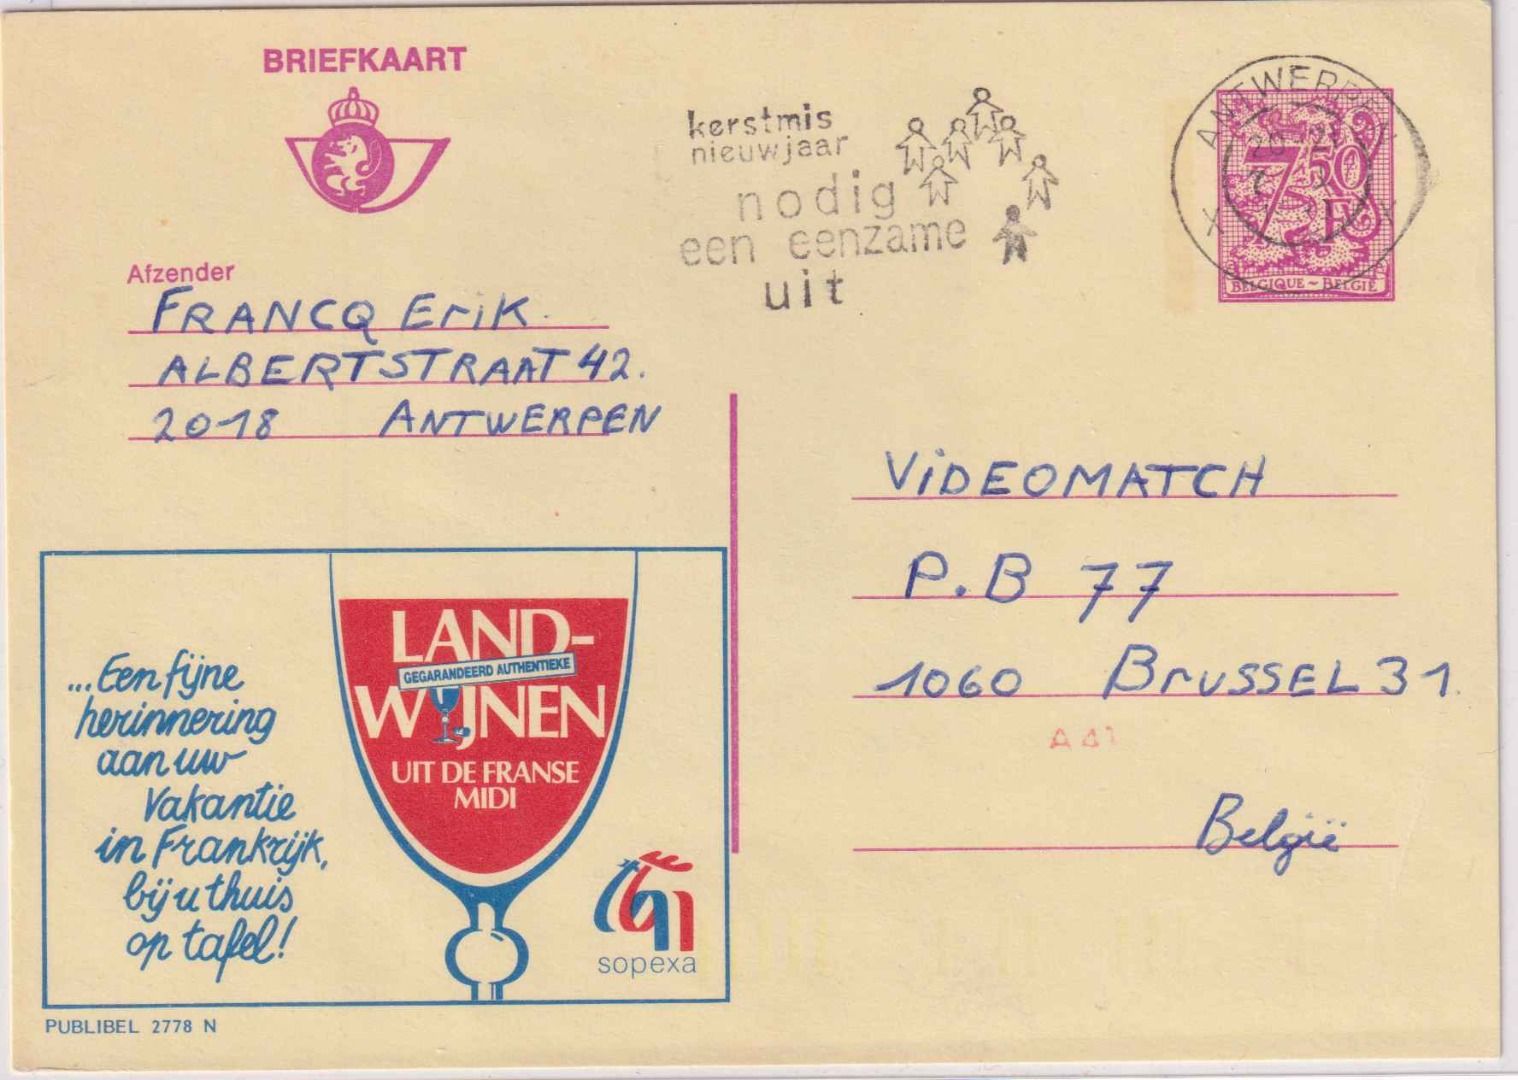 BRIEFKAART
kerstmis
nieuwjaar
nodig
een eenzame
uit
ANTWERPEN
X X
7 50
F
BELGIQUE ~ BELGIË
Afzender
FRANCQ Erik.
ALBERTSTRAAT 42.
2018 ANTWERPEN
VIDEOMATCH
P.B 77
1060 BRUSSEL 31.
A 41
België
...Een fijne
herinnering
aan uw
vakantie
in Frankrijk,
bij u thuis
op tafel!
LAND-
GEGARANDEERD AUTHENTIEKE
WIJNEN
UIT DE FRANSE
MIDI
sopexa
PUBLIBEL 2778 N